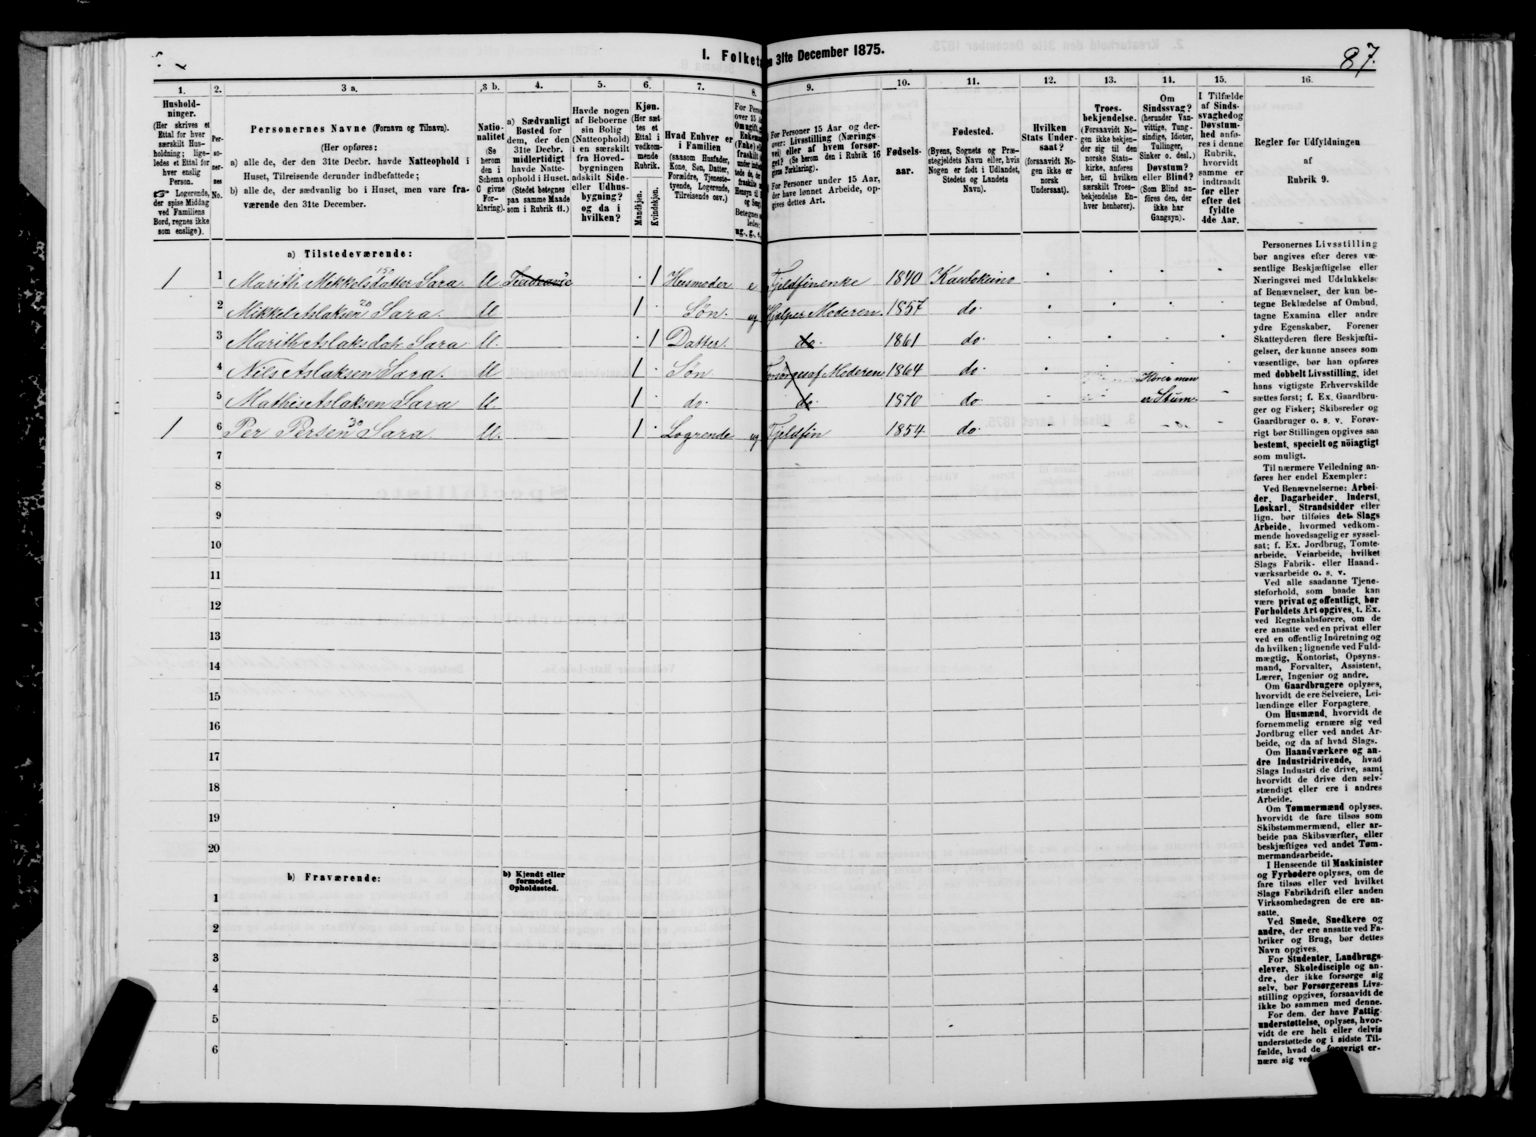 I. Folket
n 31te December 1875.
87.
1. 2. 3 a. 3 b. 4. 5. 6. 7. 8. 9. 10. 11. 12. 13. 14. 15. 16.
Hushold-
ninger.
(Her skrives et
Ettal for hver
særskilt Hus-
holdning; lige-
ledes et Ettal for
hver enslig
Person.
☞ Logerende,
der spise Middag
ved Familiens
Bord, regnes ikke
som enslige).
Per-
so-
ner-
nes
No.
Personernes Navne (Fornavn og Tilnavn).
(Her opføres:
a) alle de, der den 31te Decbr. havde Natteophold i
Huset, Tilreisende derunder indbefattede;
b) alle de, der sædvanlig bo i Huset, men vare fra-
værende den 31te December.
Natio-
nalitet
(Se
herom
den i
Schema
C givne
For-
klaring).
a) Sædvanligt
Bosted for
dem, der den
31te Decbr.
midlertidigt
havde Natte-
ophold i Huset.
(Stedet betegnes
paa samme Maade
som i Rubrik 11.)
Havde nogen
af Beboerne
sin Bolig
(Natteophold)
i en særskilt
fra Hoved-
bygningen
adskilt Side-
eller Udhus-
bygning?
og da i
hvilken?
Kjøn.
(Her sæt-
tes et
Ettal i
vedkom-
mende
Rubrik.
Mandkjøn.
Kvindekjøn.
Hvad Enhver er
i Familien
(saasom Husfader,
Kone, Søn, Datter,
Forældre, Tjeneste-
tyende, Logerende,
Tilreisende osv.)
For Personer 15 Aar og der-
over: Livsstilling (Nærings
vei) eller af hvem forsør-
get? (Se herom den i Rubrik 16
givne Forklaring).
For Personer under 15 Aar,
der have lønnet Arbeide, op-
gives dettes Art.
Fødsels-
aar.
Fødested.
(Byens, Sognets og Præ-
stegjeldets Navn eller, hvis
Nogen er født i Udlandet,
Stedets og Landets
Navn).
Hvilken
Stats Under-
saat?
(forsaavidt No-
gen ikke er
norsk
Undersaat).
Troes-
bekjendelse.
(Forsaavidt No-
gen ikke bekjen-
der sig til den
norske Stats-
kirke, anføres
her, til hvilken
særskilt Troes-
bekjendelse En-
hver henhører).
Om
Sindssvag?
(herunder Van-
vittige, Tung-
sindige, Idioter,
Tullinger,
Sinker o. desl.)
Døvstum?
eller Blind?
(Som Blind an-
føres den, der
ikke har
Gangsyn).
I Tilfælde
af Sinds-
svaghed og
Døvstum-
hed anfø-
res i denne
Rubrik,
hvorvidt
samme er
indtraadt
før eller
efter det
fyldte
4de Aar.
Regler for Udfyldningen
af
Rubrik 9.
a) Tilstedeværende:
1 1 Marith Mekkelsdatter Sara U 1 Husmoder e Fjeldfinenke 1840 Kautokeino
2 Mikkel Aslaksen Sara. U 1 Søn. ug Hjelper Moderen. 1857 do.
3 Marith Aslaksdatr Sara U. 1 Datter. do 1861 do.
4 Nils Aslaksen Sara. U 1 Søn Forsørges af Moderen 1864 do. Hører men
5 Mathis Aslaksen Sara U. 1 do. do 1870 do. er Stum.
1 6 Per Persen Sara. U. 1 Logrende ug Fjeldfin 1854 do.
7
8
9
10
11
12
13
14
15
16
17
18
19
20
b) Fraværende:
b) Kjendt eller
formodet
Opholdssted.
1
2
3
4
5
6
Personernes Livsstilling
bør angives efter deres væ-
sentlige Beskjæftigelse eller
Næringsvei med Udelukkelse
af Benævnelser, der kun be-
tegne Beklædelse af Ombud,
tagne Examina eller andre
ydre Egenskaber. Forener
Skatteyderen flere Beskjæfti-
gelser, der kunne ansees som
væsentlige, bør han opføres
med dobbelt Livsstilling, idet
hans vigtigste Erhvervskilde
sættes først; f. Ex. Gaardbru-
ger og Fisker; Skibsreder og
Gaardbruger o. s. v. Forøv-
rigt bør Stillingen opgives saa
bestemt, specielt og nöiagtigt
som muligt.
Til nærmere Veiledning an-
føres her endel Exempler:
Ved Benævnelserne: Arbei-
der, Dagarbeider, Inderst,
Løskarl, Strandsidder eller
lign. bør tilføies det Slags
Arbeide, hvormed vedkom-
mende hovedsagelig er syssel-
sat; f. Ex. Jordbrug, Tomte-
arbeide, Veiarbeide, hvilket
Slags Fabrik- eller Haand-
værksarbeide o. s. v.
Ved alle saadanne Tjene-
steforhold, som baade kan
være privat og offentligt, bør
Forholdets Art opgives, t. Ex.
ved Regnskabsførere, om de
ere ansatte ved en privat eller
ved en offentlig Indretning og
da hvilken; lignende ved Fuld-
mægtig, Kontorist, Opsyns-
mand, Forvalter, Assistent,
Lærer, Ingeniør og andre.
Om Gaardbrugere oplyses,
hvorvidt de ere Selveiere, Lei-
lændinge eller Forpagtere.
Om Husmænd, hvorvidt de
fornemmelig ernære sig ved
Jordbrug eller ved andet Ar-
beide, og da af hvad Slags.
Om Haandværkere og an-
dre Industridrivende, hvad
Slags Industri de drive, samt
hvorvidt de drive den selv-
stændigt eller ere i andres
Arbeide.
Om Tømmermænd oplyses,
hvorvidt de fare tilsøs som
Skibstømmermænd, eller ar-
beide paa Skibsværfter, eller
beskjæftiges ved andet Tøm-
mermandsarbeide.
I Henseende til Maskinister
og Fyrbødere oplyses, om de
fare tilsøs eller ved hvilket
Slags Fabrikdrift eller anden
Virksomhedsgren de ere an-
satte.
Ved Smede, Snedkere og
andre, der ere ansatte ved Fa-
briker og Brug, bør dettes
Navn opgives.
For Studenter, Landbrugs-
elever, Skoledisciple og an-
dre, der ikke forsørge sig
selv, bør Forsørgerens Livs-
stilling opgives, forsaavidt de
ikke bo sammen med denne.
For dem, der have Fattig-
understøttelse, oplyses, hvor-
vidt de ere helt eller delvis
understøttede og i sidste Til-
fælde, hvad de forøvrigt er-
nære sig ved